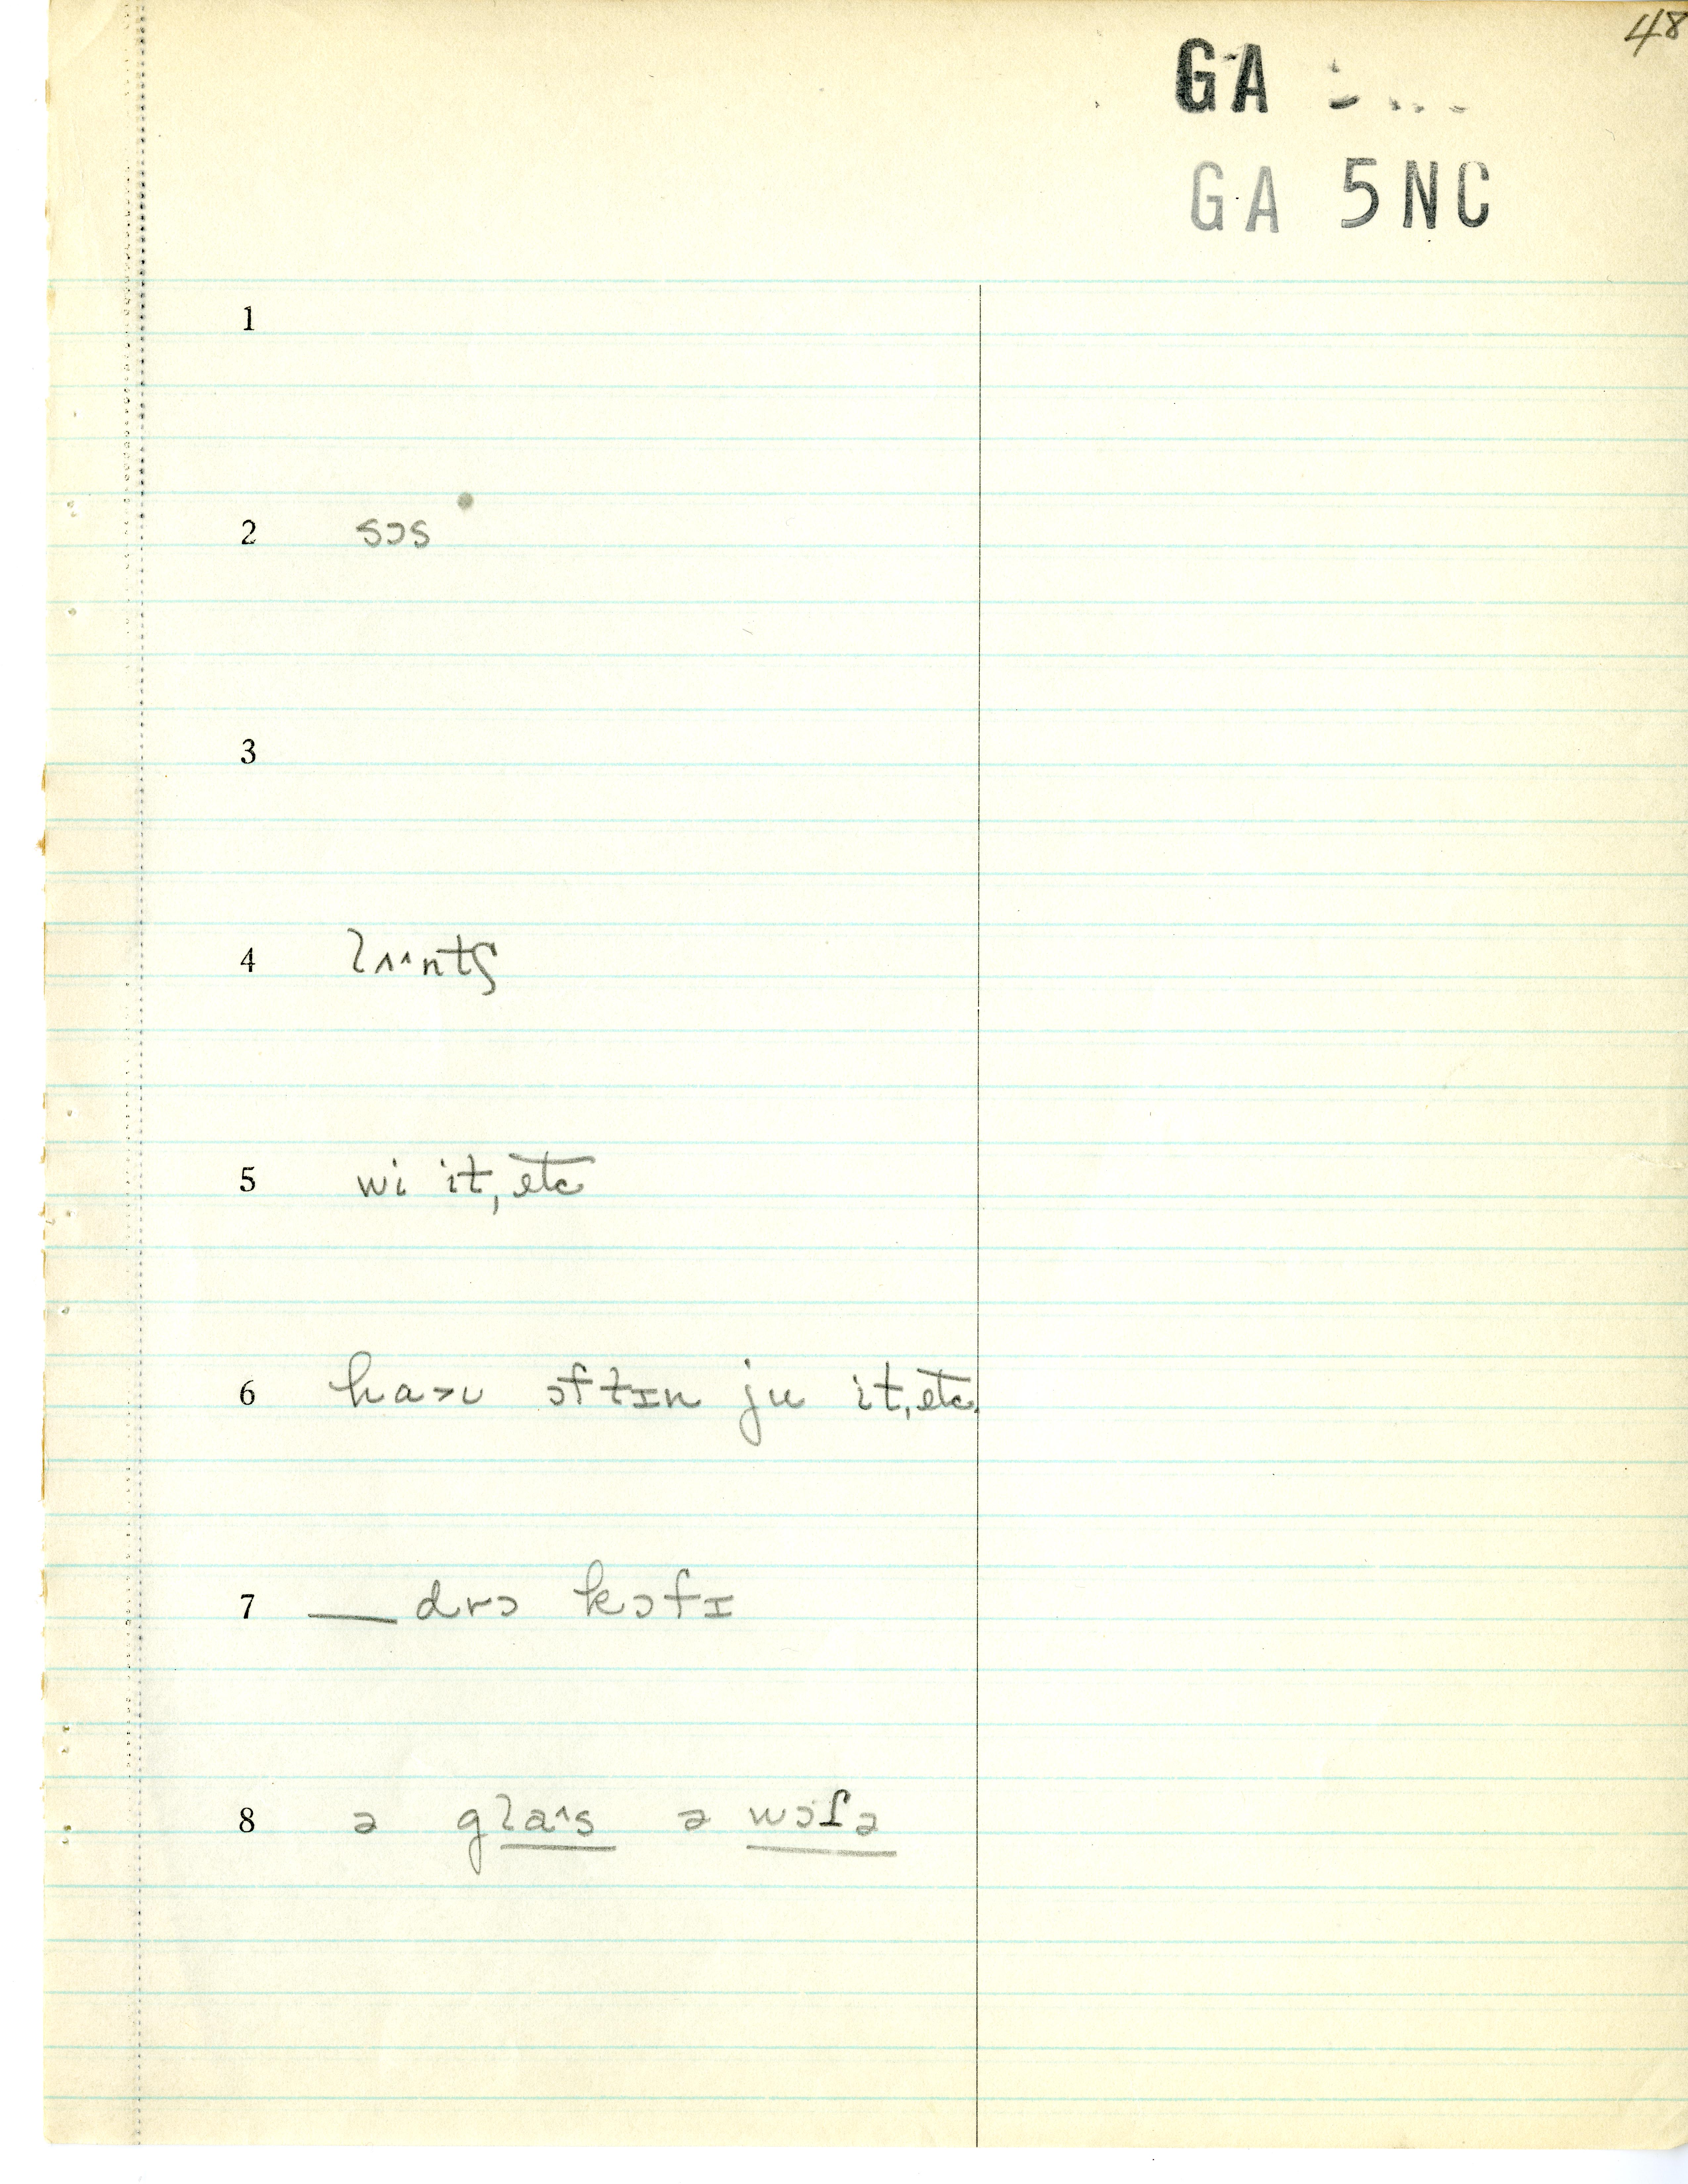 48
GA
GA 5NC
1
2 sɔs
3
4 lʌ^ntʃ
5 wi it, etc
6 ha>ʊ ɔftɪn ju it, etc.
7 ___ drɔ kɔfɪ
8 ə gla^s ə wɔɾə